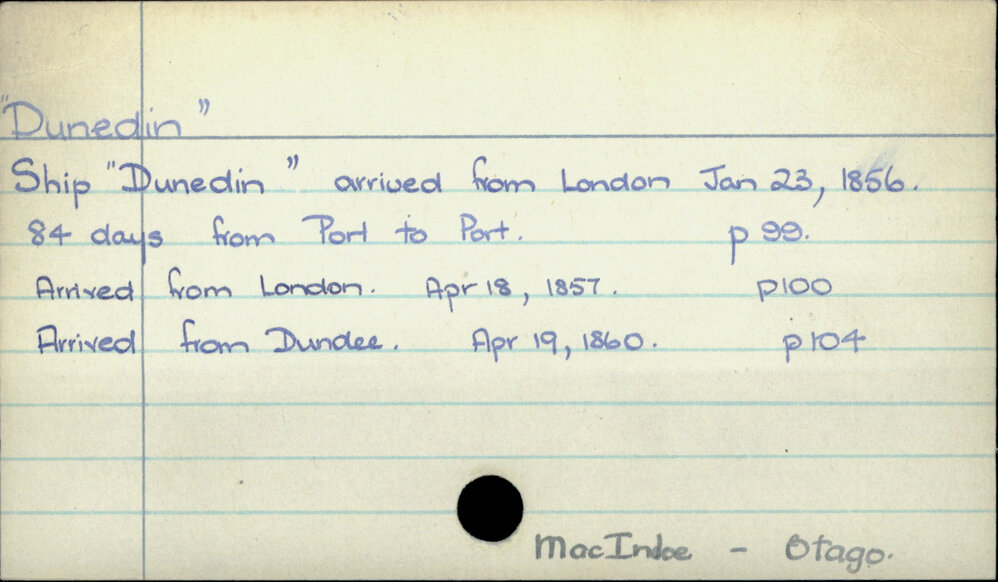 "Dunedin"
Ship "Dunedin" arrived from London Jan 23, 1856.
84 days from Port to Port. p 99.
Arrived from London. Apr 18, 1857. p100
Arrived from Dundee. Apr 19, 1860. p104
MacIndoe - Otago.